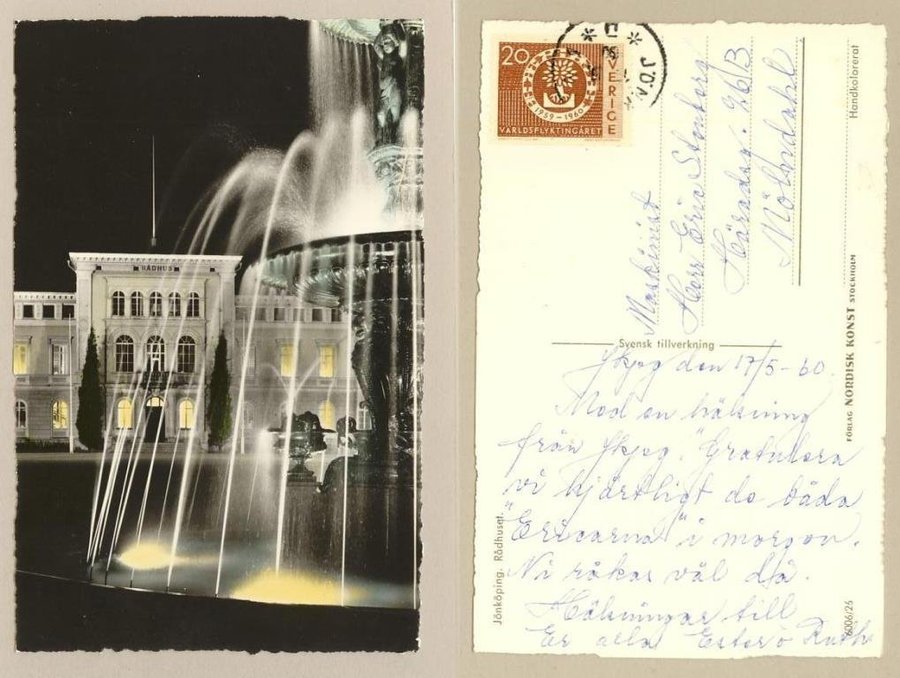 RÅDHUS
20
SVERIGE
1959-1960
VÄRLDSFLYKTINGÅRET
JÖN
Maskinist
Herr Eric Stenberg
Häradsg. 26B
Mölndal
Svensk tillverkning
Jkpg den 17/5-60.
Med en hälsning
från Jkpg. Gratulera
vi hjärtligt de båda
"Ericarna" i morgon.
Ni råkas väl då.
Hälsningar till
Er alla Ester o Ruth
Jönköping. Rådhuset.
Handkolorerat
FÖRLAG NORDISK KONST STOCKHOLM
6006/26